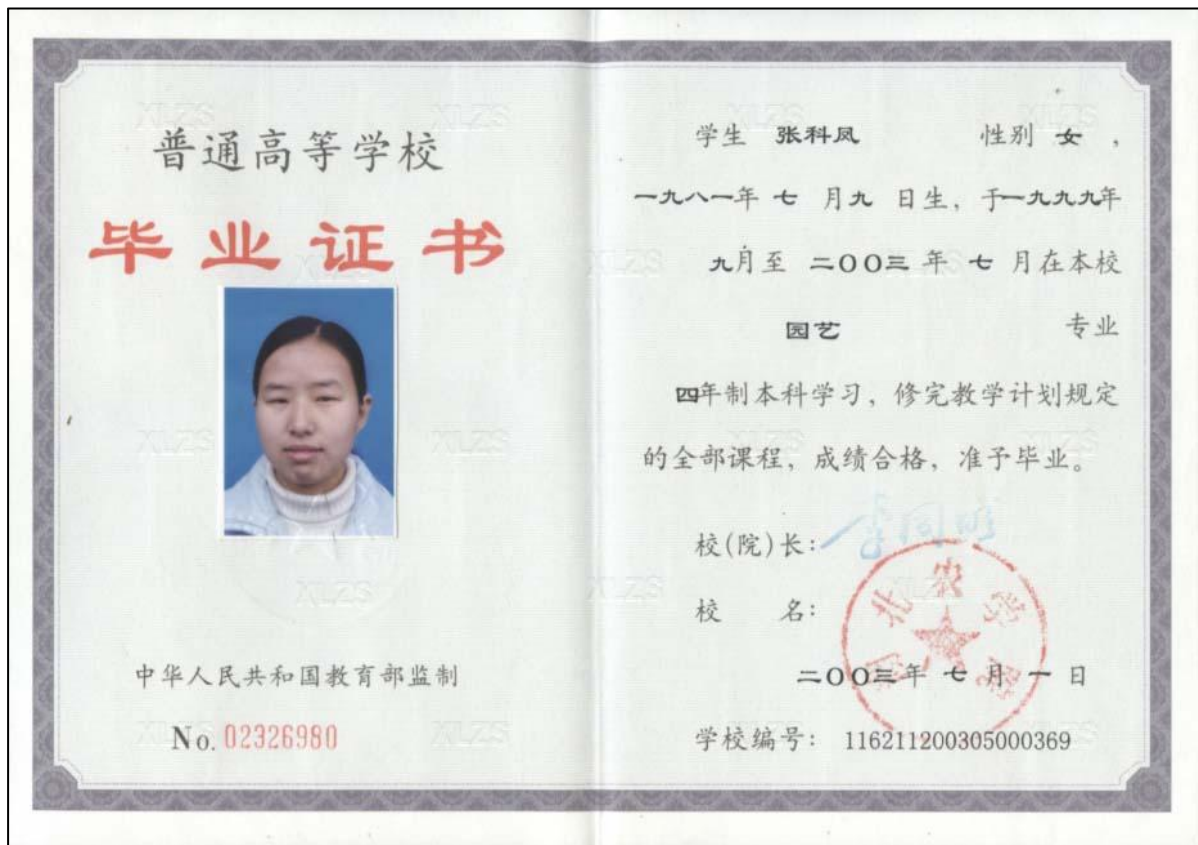 普通高等学校
毕业证书
中华人民共和国教育部监制
No. 02326980
学生 张科凤 性别 女 ,
一九八一年 七 月九 日生, 于一九九九年
九月至 二OO三 年 七 月在本校
园艺 专业
四年制本科学习, 修完教学计划规定
的全部课程, 成绩合格, 准予毕业。
校(院)长:
校 名:
北农学院
二OO三年 七 月 一 日
学校编号: 116211200305000369
XLZS